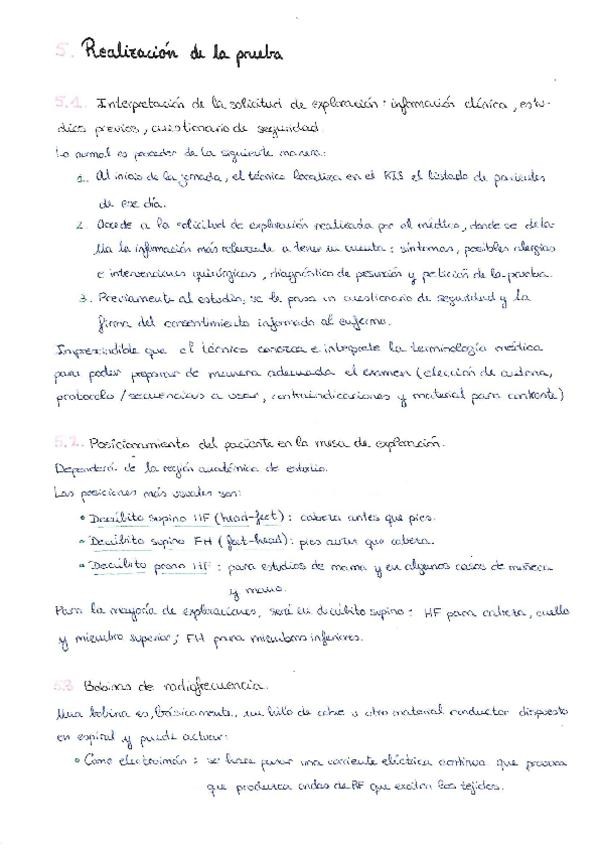 5. Realización de la prueba
5.1. Interpretación de la solicitud de exploración: información clínica, estu-
dios previos, cuestionario de seguridad.
Lo normal es proceder de la siguiente manera:
1. Al inicio de la jornada, el técnico localiza en el RIS el listado de pacientes
de ese día.
2. Accede a la solicitud de exploración realizada por el médico, donde se deta-
lla la información más relevante a tener en cuenta: síntomas, posibles alergias
e intervenciones quirúrgicas, diagnóstico de presunción y petición de la prueba.
3. Previamente al estudio, se le pasa un cuestionario de seguridad y la
firma del consentimiento informado al enfermo.
Imprescindible que el técnico conozca e interprete la terminología médica
para poder preparar de manera adecuada el examen (elección de antena,
protocolo / secuencias a usar, contraindicaciones y material para contraste)
5.2. Posicionamiento del paciente en la mesa de exploración.
Dependerá de la región anatómica de estudio.
Las posiciones más usuales son:
• Decúbito supino HF (head-feet): cabeza antes que pies.
• Decúbito supino FH (feet-head): pies antes que cabeza.
• Decúbito prono HF: para estudios de mama y en algunos casos de muñeca
y mano.
Para la mayoría de exploraciones, será en decúbito supino: HF para cabeza, cuello
y miembro superior; FH para miembros inferiores.
5.3 Bobinas de radiofrecuencia.
Una bobina es, básicamente, un hilo de cobre u otro material conductor dispuesto
en espiral y puede actuar:
• Como electroimán: se hace pasar una corriente eléctrica continua que provoca
que produzca ondas de RF que exciten los tejidos.